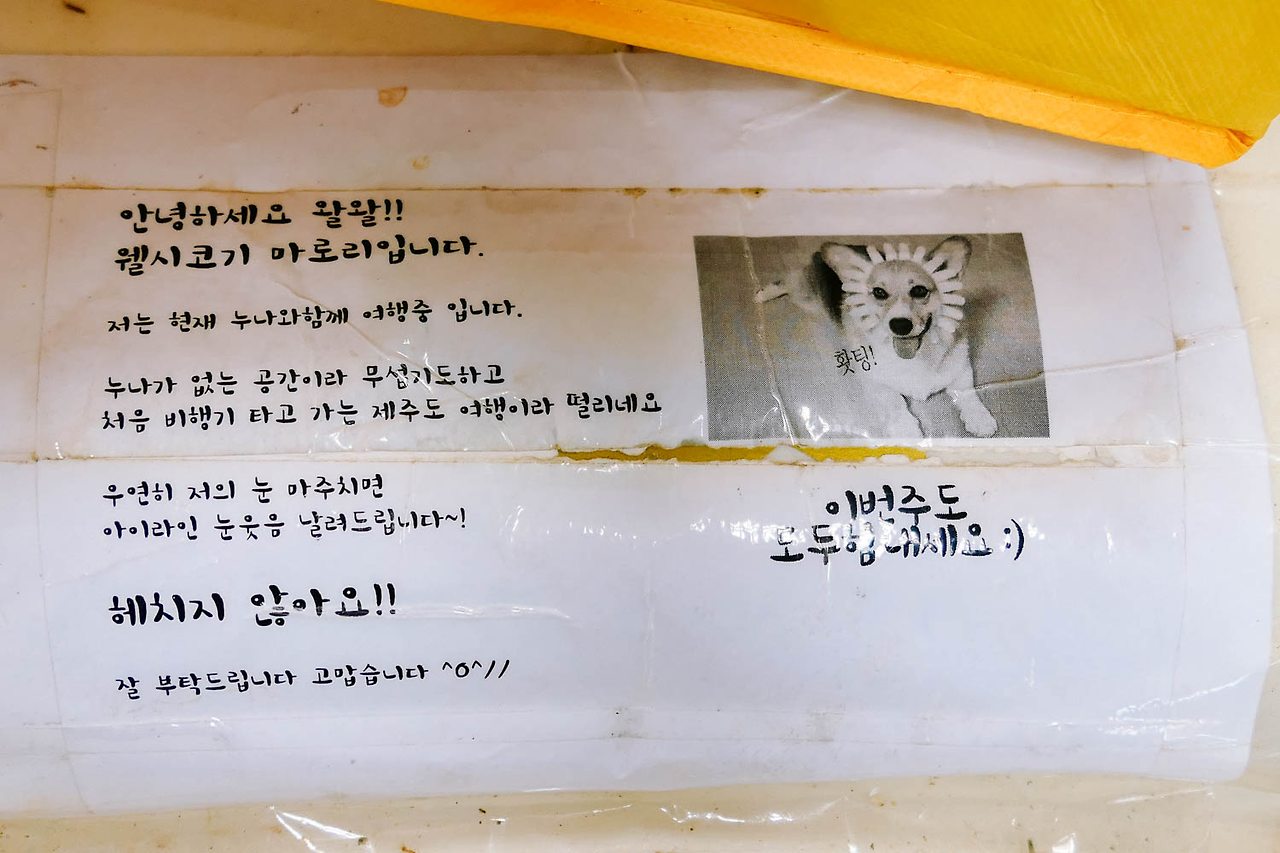 안녕하세요 왈왈!!
웰시코기 마로리입니다.
저는 현재 누나와함께 여행중 입니다.
누나가 없는 공간이라 무섭기도하고
처음 비행기 타고 가는 제주도 여행이라 떨리네요
우연히 저의 눈 마주치면
아이라인 눈웃음 날려드립니다~!
헤치지 않아요!!
잘 부탁드립니다 고맙습니다 ^0^//
홧팅!
이번주도
모두힘내세요 :)